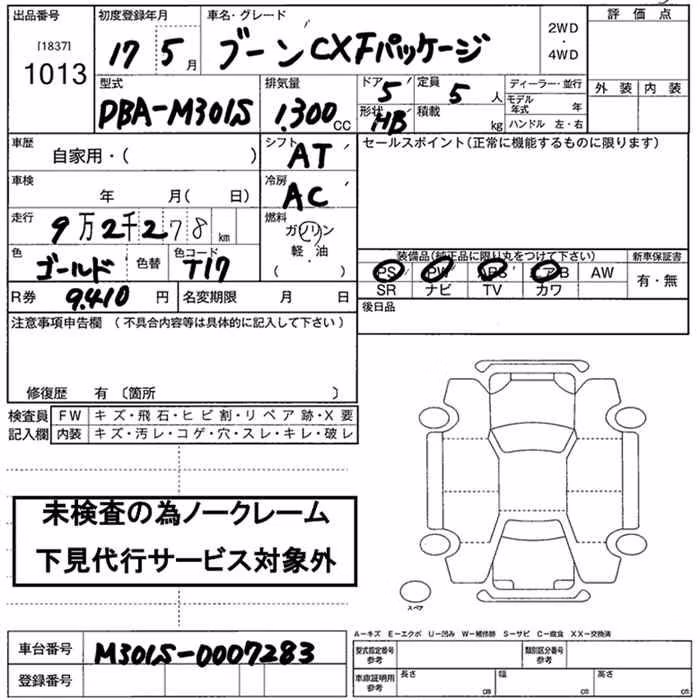 出品番号 初度登録年月 車名・グレード 2WD・4WD 評価点
[1837]
1013 17 5月 ブーン CXFパッケージ
外装 内装
型式 排気量 ドア 5 定員 5人 ディーラー・並行
DBA-M301S 1.300 CC 形状 HB 積載 kg モデル年式 年
ハンドル 左・右
車歴 自家用・( ) シフト AT セールスポイント(正常に機能するものに限ります)
車検 年 月( 日) 冷房 AC
走行 9万2千278 km 燃料 ガソリン
軽・油
( )
色 ゴールド 色替 色コード T17
装備品(純正品に限り丸をつけて下さい) 新車保証書
PS PW ABS エアB AW 有・無
SR ナビ TV カワ
R券 9.410円 名変期限 月 日 後日品
注意事項申告欄 (不具合内容等は具体的に記入して下さい)
修復歴 有〔箇所 〕
検査員 FW キズ・飛石・ヒビ割・リペア跡・X要
記入欄 内装 キズ・汚レ・コゲ・穴・スレ・キレ・破レ
未検査の為ノークレーム
下見代行サービス対象外
スペア
A-キズ E-エクボ U-凹み W-補修跡 S-サビ C-腐食 XX-交換済
車台番号 M301S-0007283 型式指定番号 参考 類別区分番号 参考
登録番号 車庫証明用 参考 長さ cm 幅 cm 高さ cm